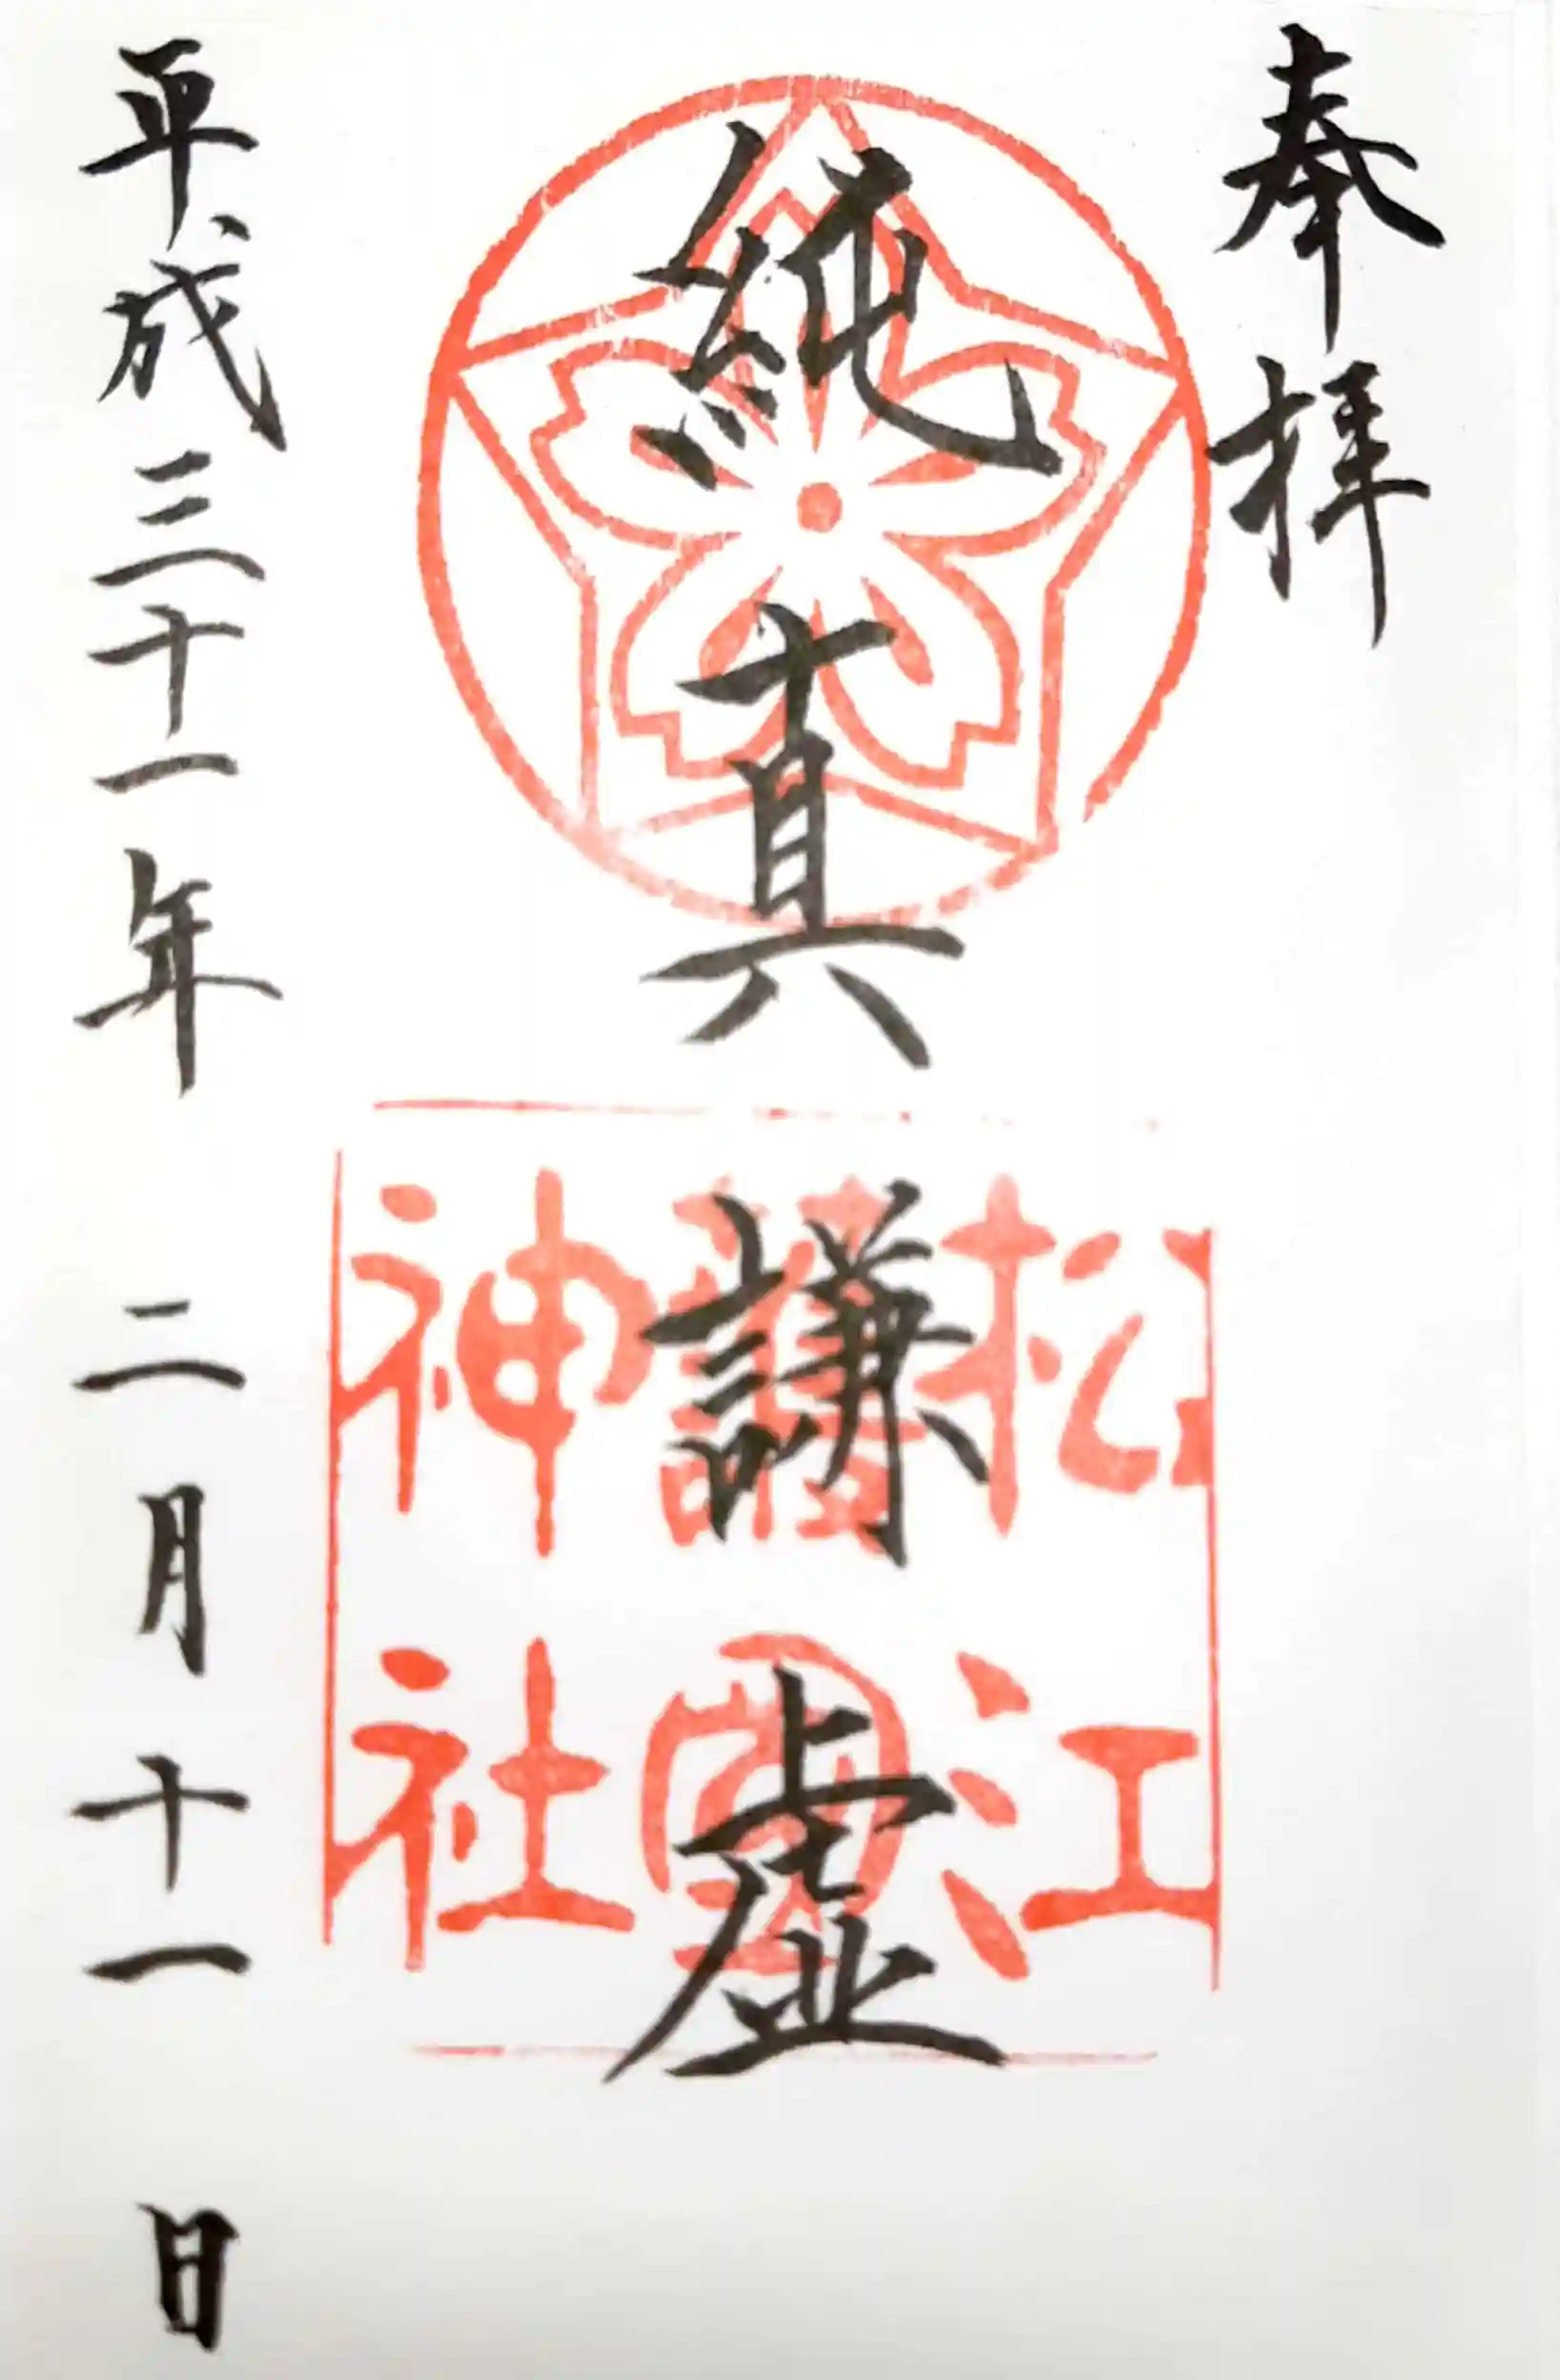 奉拝
純真
謙虚
松江
護國
神社
平成三十一年二月十一日